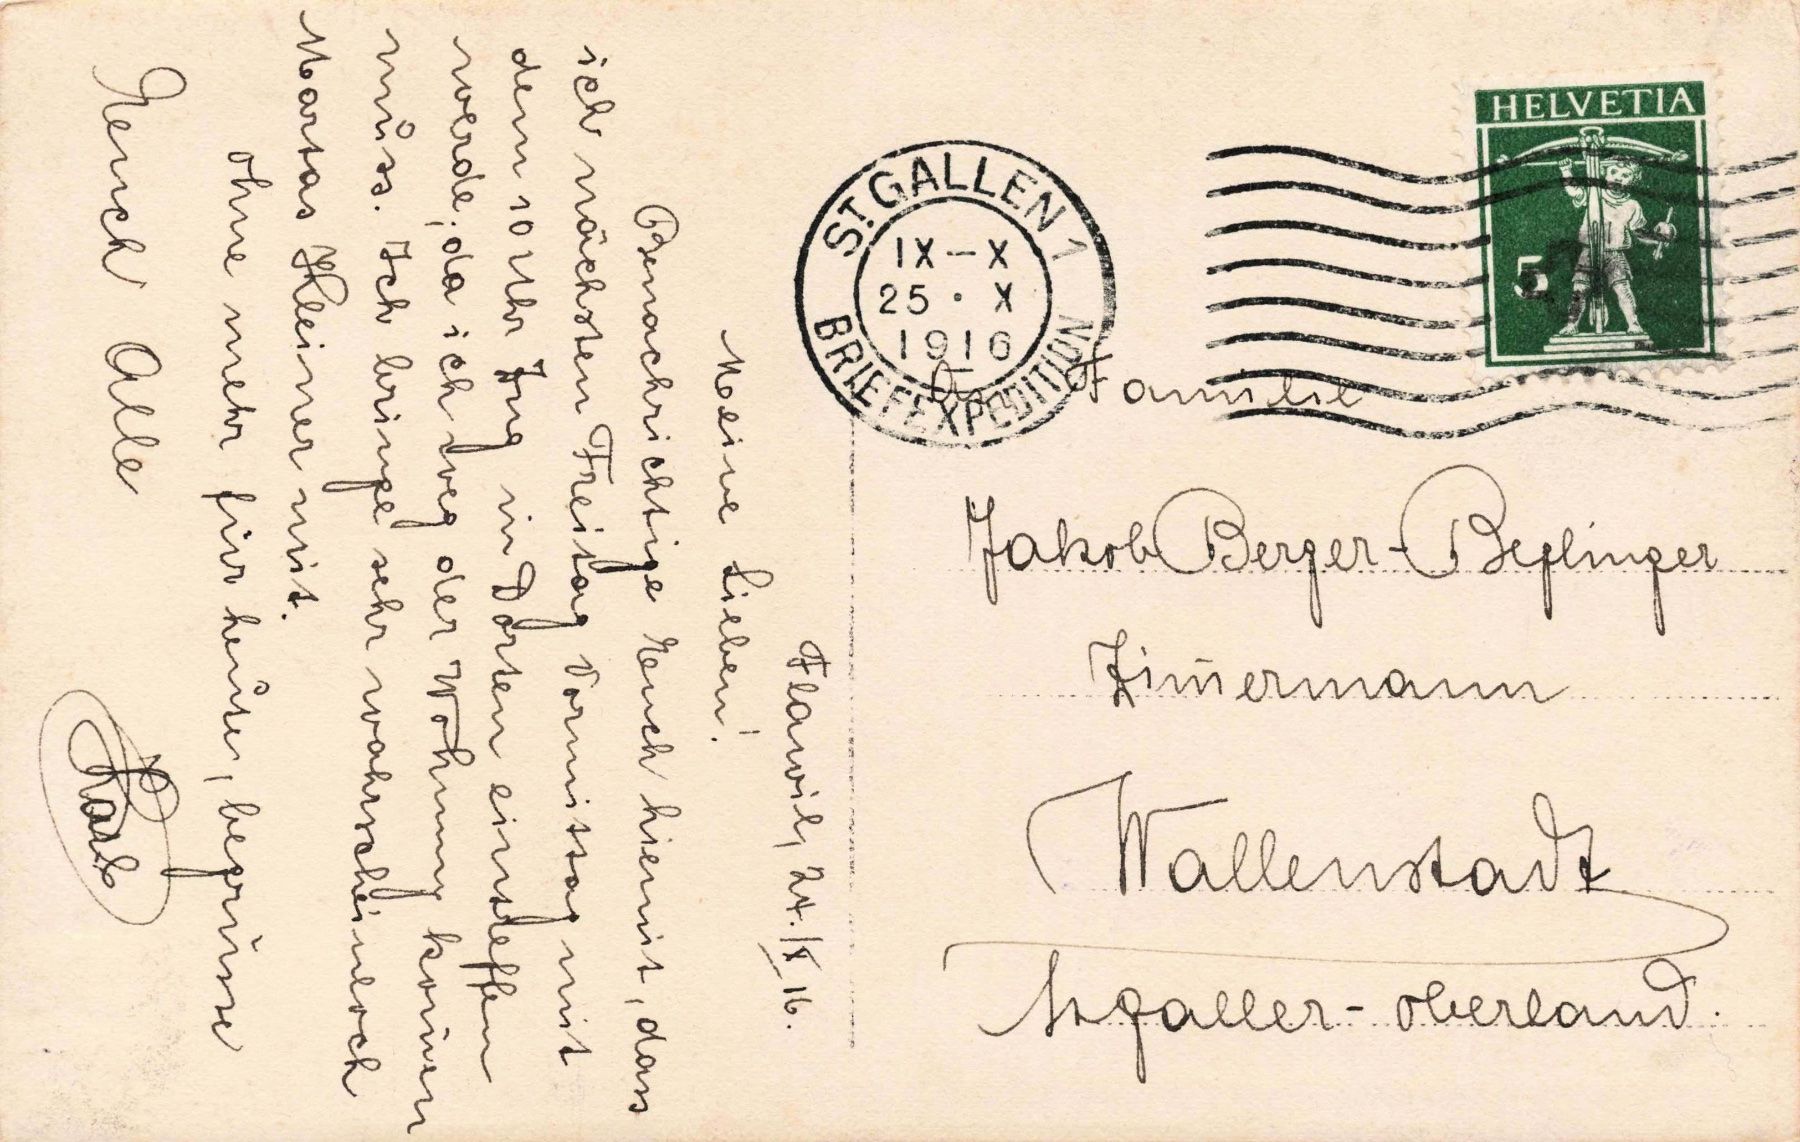 Flawil, 24./X 16.
Meine Lieben!
Benachrichtige Euch hiemit, dass
ich nächsten Freitag Vormittag mit
dem 10 Uhr Zug in Dorten eintreffen
werde, da ich weg der Wohnung kom̄en
muss. Ich bringe sehr wahrscheinloch
Martas Kleiner mit.
Ohne mehr für heute, begrüsse
Euch Alle
Karl
ST. GALLEN 1
IX–X
25 · X
1916
BRIEFEXPEDITION
HELVETIA
5
An Familie
Jakob Berger-Beglinger
Zim̄ermann
Wallenstadt
Stgaller-oberland.